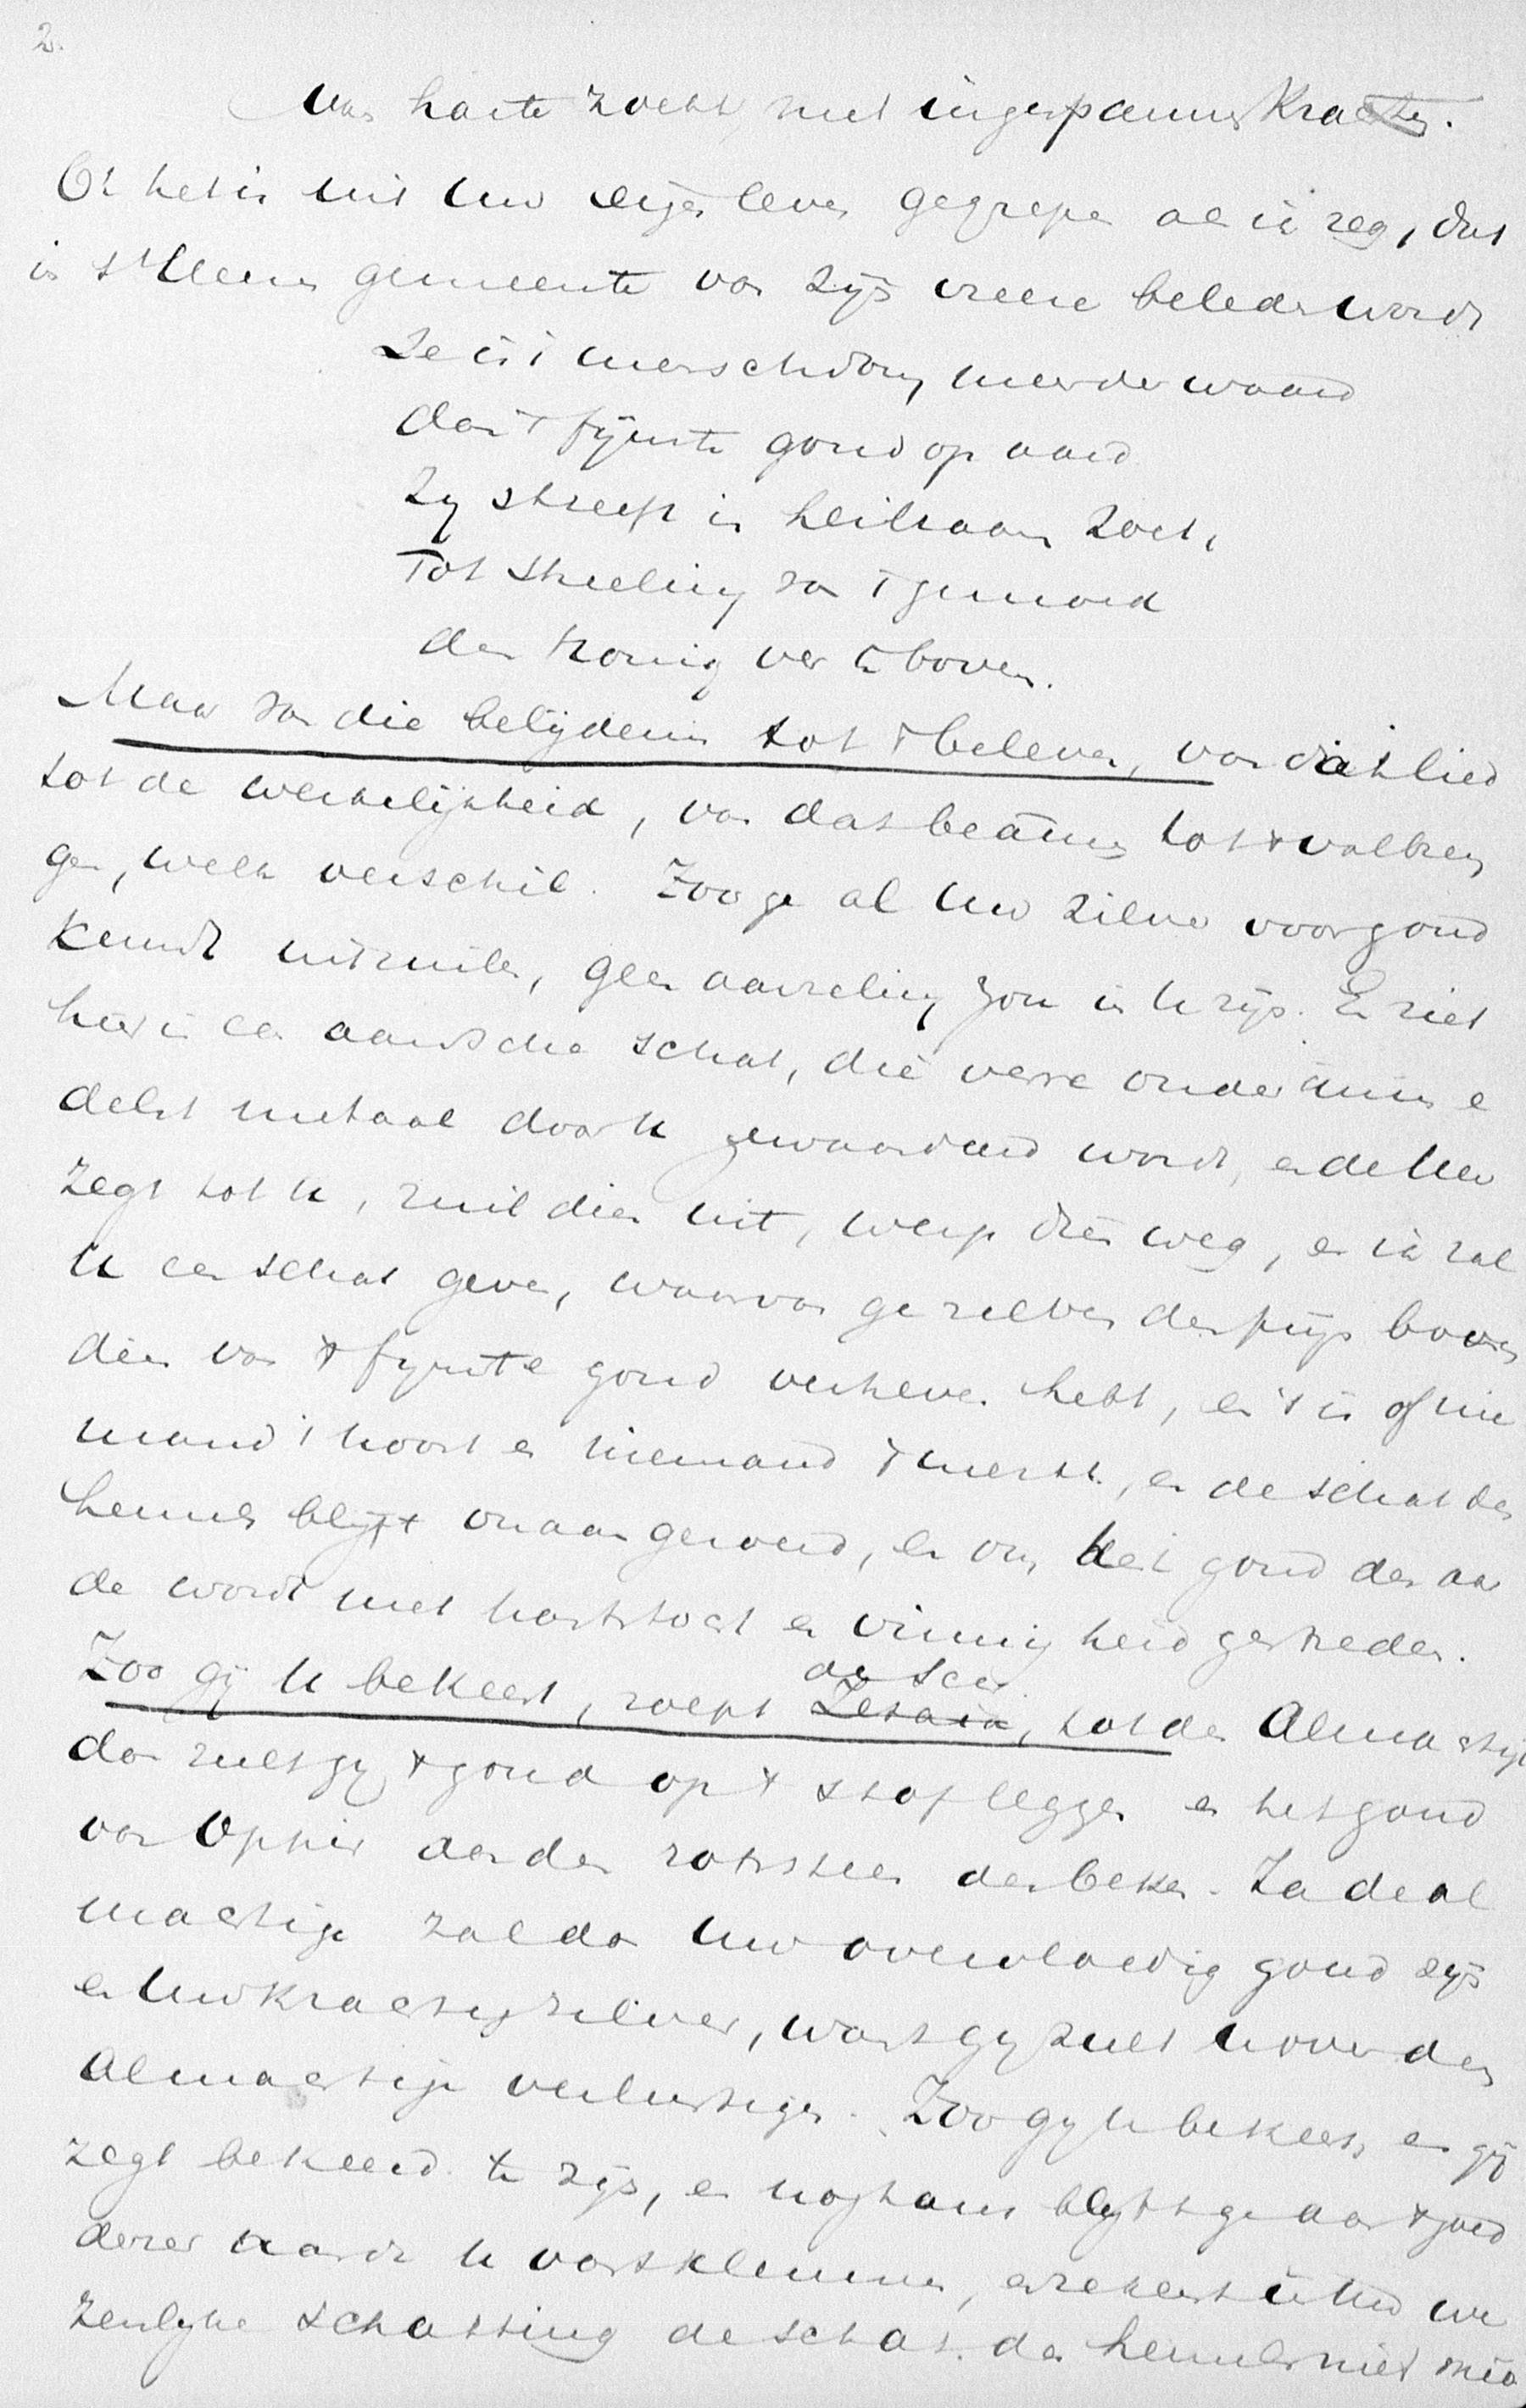 2.
van harte zoekt met ingespannen krachten.
Of het is uit uw eigen leven gegrepen als ik zeg, dat
in s'Heeren gemeente van Zijn vreeze beleden wordt
Ze is 't menschdom meerder waard
dan 't fijnste goud op aard
Zij streeft in heilzaam zoet,
Tot streeling van 't gemoed
den honig ver te boven.
Maar van die belijdenis tot 't beleven, van dat lied
tot de werkelijkheid, van dat beamen tot 't volbren
gen, welk verschil. Zoo ge al uw zilver voor goud
kunt uitruilen, geen aarzeling zou in u zijn. En ziet
hier is een aardsche schat, die verre onder dien e
delst metaal door u gewaardeerd wordt, en de Heer
zegt tot u, ruil dien uit, werp dien weg, en ik zal
u een schat geven, waarvan ge zelven den prijs boven
dien van 't fijnste goud verheven hebt, en 't is of nie
mand 't hoort en niemand 't merkt, en de schat des
hemels blijft onaangeroerd, en om het goud der aar
de wordt met hartstocht en vinnigheid gestreden.
de Heer
Zoo gij u bekeert, roept Jesaia, tot den Almachtige
dan zult gij 't goud op 't stof leggen en het goud
van Ophir aan den rotssteen der beken. Ja de al
machtige zal dan uw overvloedig goud zijn
en uw krachtig zilver, want gij zult u over den
Almachtige verlustigen. Zoo gij u bekeert, en gij
zegt bekeerd te zijn, en nogtans blijft ge aan 't goud
dezer aarde u vastklemmen, en rekent in uw we
zenlijke schatting de schat des hemels niet mee